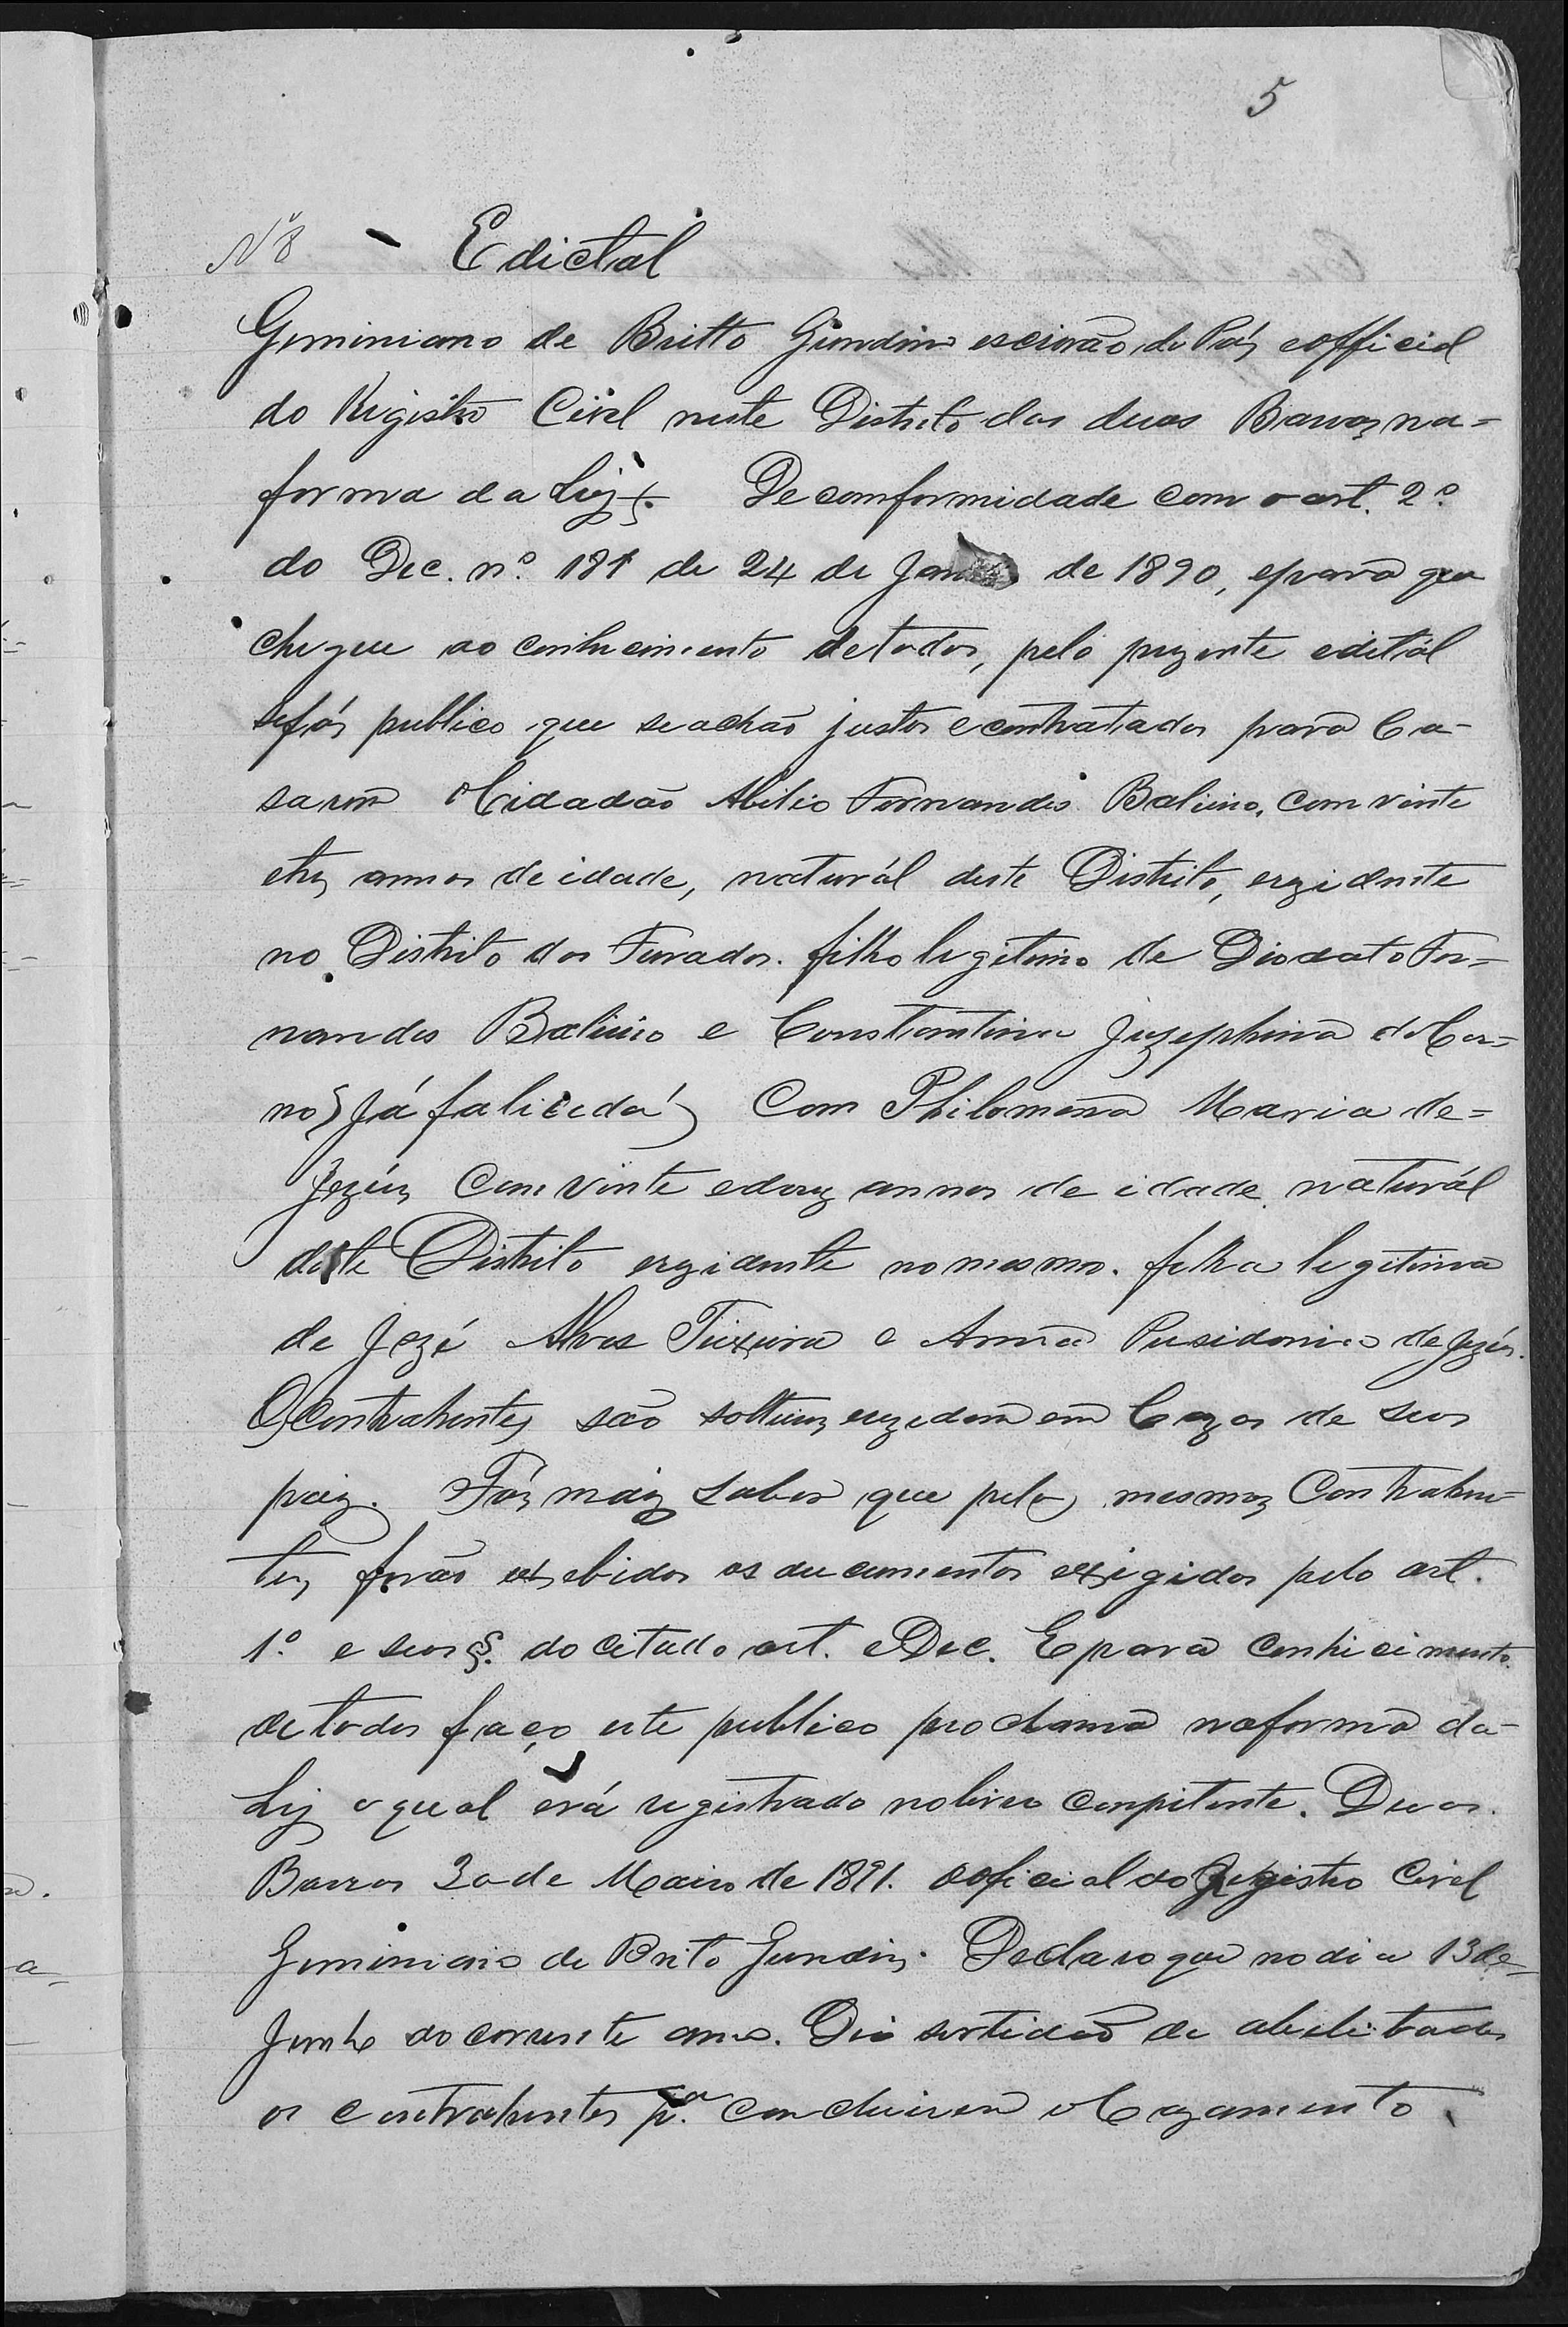 5
Nº 8 - Edictal
Geminiano de Britto Gundim escrivão de Páz e official
do Rigistro Civel neste Distrito das duas Barras na=
forma da Ley &. De comformidade com o art. 2º
do Dec. nº. 181 de 24 de Jan de 1890, e para que
chegue ao conhecimento de todos, pelo prezente edital
se fás publico que se achão justos e contratados para Ca-
sarem o Cidadão Abilio Fernandes Balieiro, com vinte
e trez annos de idade, naturál deste Distrito, e rezidente
no Distrito dos Furados. filho legitimo de Diodato Fer=
nandes Balieiro e Constantina Jozephina do Car=
mo (Já falicida) Com Philomena Maria de=
Jezús, Com vinte e doez annos de idade, naturál
deste Distrito e rezidente no mesmo. filha legitima
de Jozé Alves Teixeira e Anna Pusidonia de Jezús.
Os Contrahentes são solteiros e rezidem em Cazas de seos
paiz. Fáz maiz saber que pelos mesmos Contrahen=
tes forão exsebidos os ducumentos exsigidos pelo art.
1º e seos §. do citado art. e Dec. E para conhicimento
de todos faço este publico proclama na forma da
Ley o qual será registrado no livro conpitente. Duas
Barras 30 de Maio de 1891. o oficial do Registro Civel
Geminiano de Brito Gundim. Declaro que no dia 13 de=
Junho do corrente anno. Dei sertidão de abelitados
os contrahentes pª. concluirem o Cazamento.